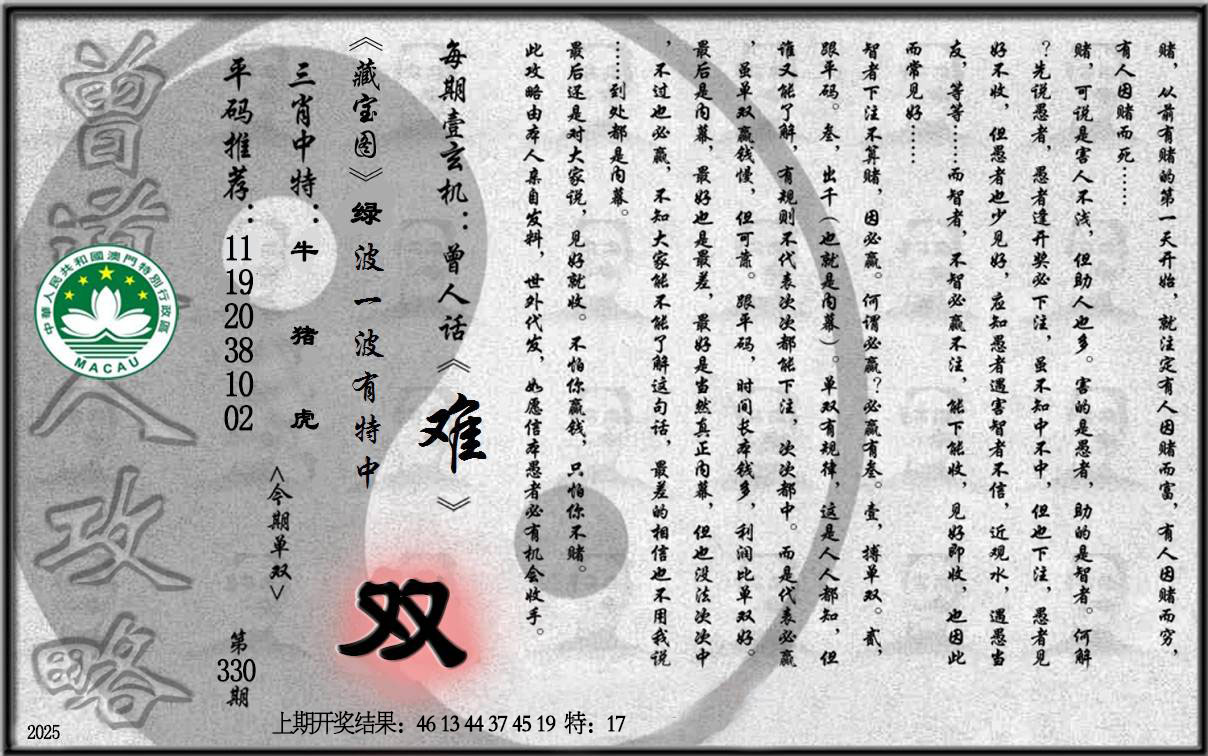 赌，从前有赌的第一天开始，就注定有人因赌而富，有人因赌而穷，
有人因赌而死……
赌，可说是害人不浅，但助人也多。害的是愚者，助的是智者。何解
？先说愚者，愚者逢开奖必下注，虽不知中不中，但也下注，愚者见
好不收，但愚者也少见好，应知愚者遇害智者不信，近观水，遇愚当
友，等等……而智者，不智必赢不注，能下能收，见好即收，也因此
而常见好……
智者下注不算赌，因必赢。何谓必赢？必赢有叁。壹，搏单双。贰，
跟平码。叁，出千（也就是内幕）。单双有规律，这是人人都知，但
谁又能了解，有规则不代表次次都能下注，次次都中。而是代表必赢
，虽单双赢钱慢，但可靠。跟平码，时间长本钱多，利润比单双好。
最后是内幕，最好也是最差，最好是当然真正内幕，但也没法次次中
，不过也必赢，不知大家能不能了解这句话，最差的相信也不用我说
……到处都是内幕。
最后还是对大家说，见好就收。不怕你赢钱，只怕你不赌。
此攻略由本人亲自发料，世外代发，如愿信本愚者必有机会收手。
每期壹玄机：曾人话《难》
《藏宝图》绿波一波有特中
双
三肖中特：牛 猪 虎
<今期单双>
平码推荐：11 19 20 38 10 02
第330期
曾道人攻略
中華人民共和國澳門特別行政區
MACAU
上期开奖结果：46 13 44 37 45 19 特：17
2025